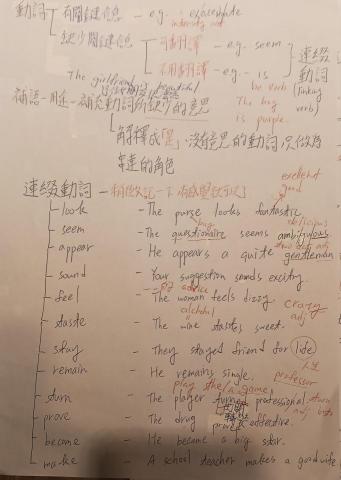 動詞 有關鍵信息 - e.g. : exacerbate
缺少關鍵信息 可翻譯 - e.g. seem
不用翻譯 - e.g. - is
be verb
連綴動詞
(linking verb)
The girlfriend beautiful
The bag is purple.
補語 - 用途 - 補充動詞所缺少的意思
解釋成「是」, 沒有意思的動詞, 只做為
穿連的角色
連綴動詞 - 稍微記一下
excellent
good
look - The purse looks fantastic.
bag
seem - The questionaire seems ambiguous.
appear - He appears a quite gentleman.
sound - Your suggestion sounds exciting
advice
feel - The woman feels dizzy crazy
adj
alchohol
taste - The wine tastes sweet.
stay - They stayed friend for life
人生
remain - He remains single.
professor
play the game
turn - The player turned professional.
prove - The drug proves effective.
become - He became a big star.
make - A school teacher makes a good wife